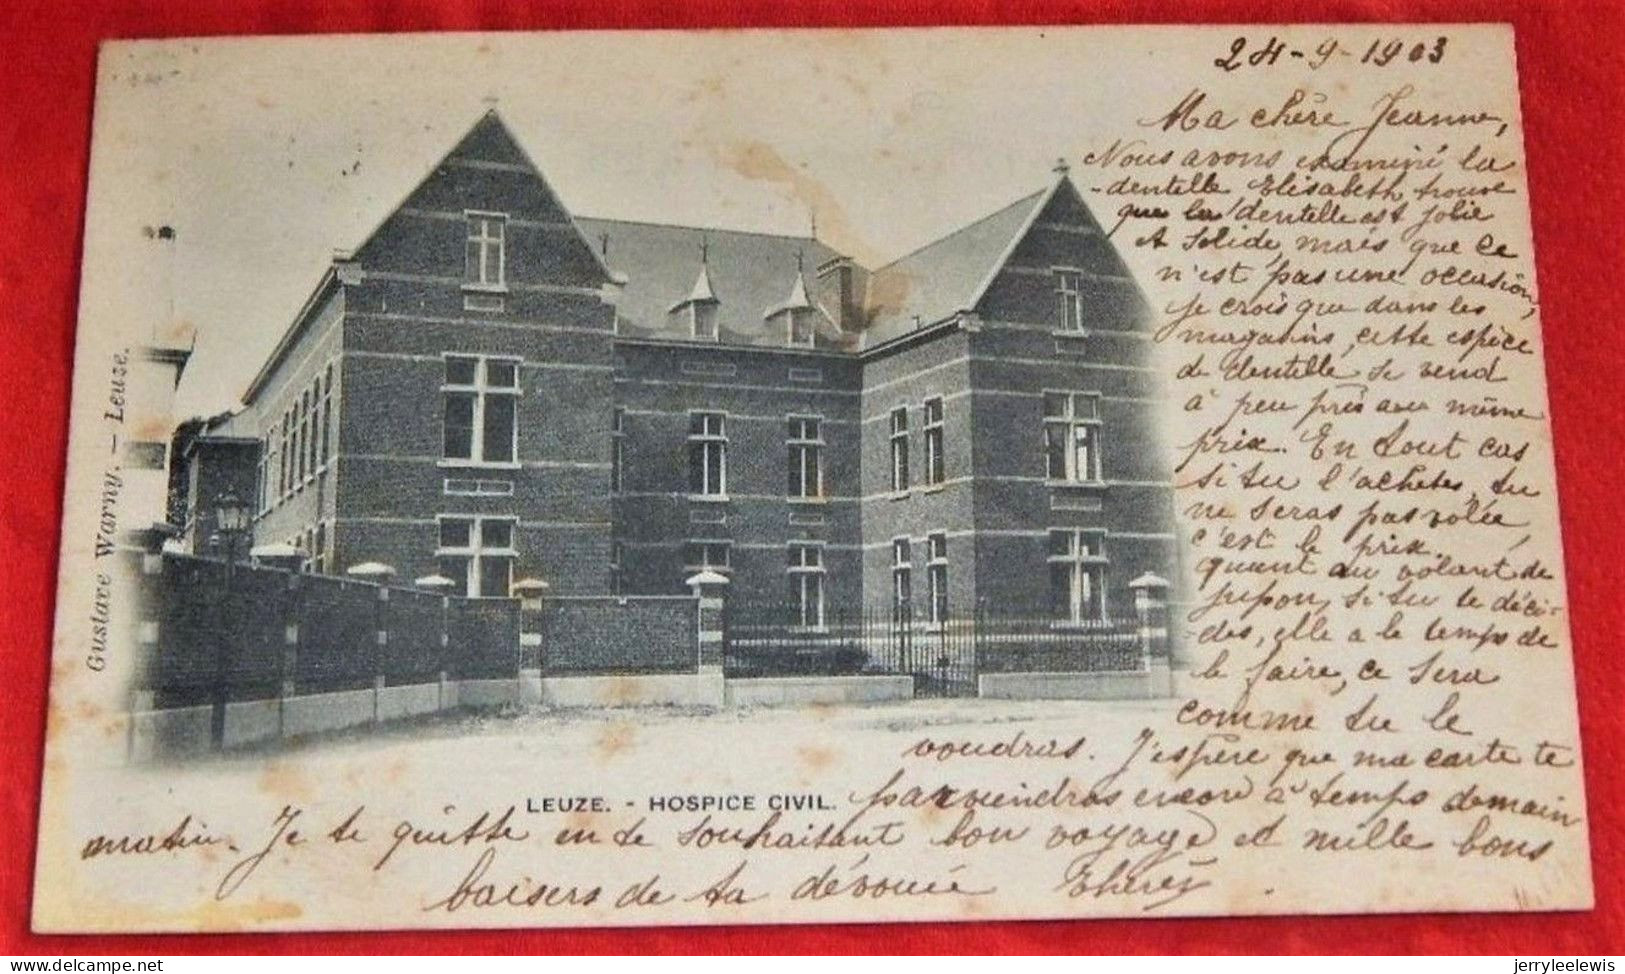 24-9-1903
Ma chère Jeanne,
Nous avons examiné la
-dentelle Elisabeth trouve
que la dentelle est jolie
et solide, mais que ce
n'est pas une occasion,
je crois que dans les
magasins, cette espèce
de dentelle se vend
à peu près au même
prix. En tout cas
si tu l'achètes, tu
ne seras pas volée,
c'est le prix.
quant au volant de
jupon, si tu te déci-
-des, elle a le temps de
le faire, ce sera
comme tu le
voudras. J'espère que ma carte te
parviendras encore à temps demain
matin. Je te quitte en te souhaitant bon voyage et mille bons
baisers de ta dévouée
Gustave Warny. — Leuze.
LEUZE. - HOSPICE CIVIL.
jerryleelewis